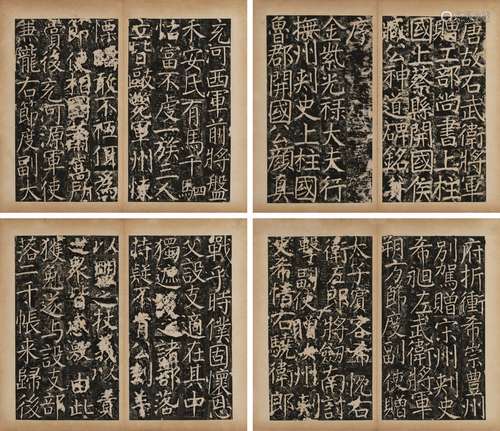 唐故右武衛將軍
贈工部尚書上柱
國上蔡縣開國侯
臧公神道碑銘
序
金紫光祿大夫行
撫州刺史上柱國
魯郡開國公顏真
充河西軍前將盤
禾安氏有馬千駟
怙富不虔一族三人
立皆毆斃軍州悚
慄敢不祗懼為
節使相國蕭嵩所
賞後充河源軍使
兼隴右節度副大
府折衝希崇豐州
別駕贈宋州刺史
希昶左武衛將軍
朔方節度副使贈
太子賓客希忱右
衛左郎將劍南討
擊副使贈汝州刺
史希愔右驍衛郎
戰乎時僕固懷恩
父設支適在其中
獨遮護之諸部落
持疑不肯公剚羊
以明之杖義責
之眾皆感激由此
獲免遂與設支部
落二千帳來歸後